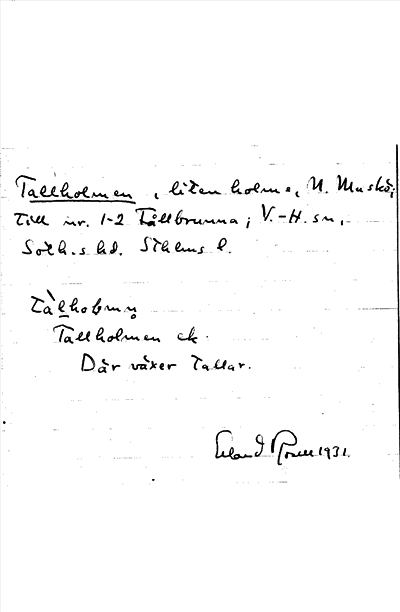 Tallholmen, liten holme, N. Muskö;
till nr. 1-2 Tållbrunna; V.-H. sn,
Soth.s hd. Sthlms l.
Tallholmen ek.
Där växer tallar.
Erland Rosell 1931.